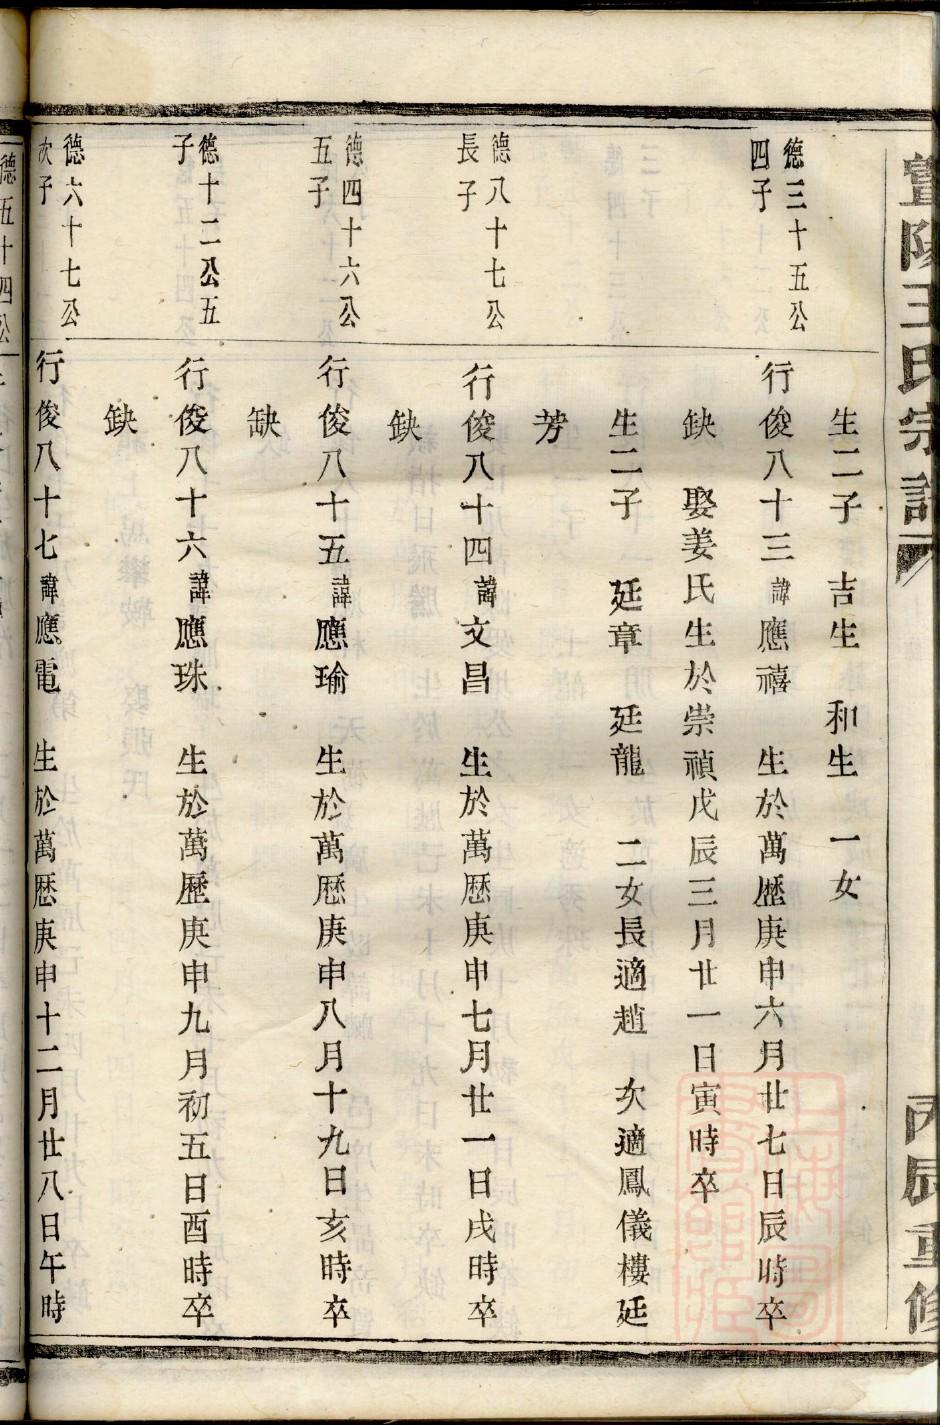 暨陽王氏宗譜
丙辰重修
生二子 吉生 和生 一女
德三十五公
四子
行俊八十三諱應禧 生於萬歷庚申六月廿七日辰時卒
缺 娶姜氏生於崇禎戊辰三月廿一日寅時卒
生二子 廷章 廷龍 二女長適趙 次適鳳儀樓廷
芳
德八十七公
長子
行俊八十四諱文昌 生於萬歷庚申七月廿一日戌時卒
缺
德四十六公
五子
行俊八十五諱應瑜 生於萬歷庚申八月十九日亥時卒
缺
德十二公五
子
行俊八十六諱應珠 生於萬歷庚申九月初五日酉時卒
缺
德六十七公
次子
行俊八十七諱應電 生於萬歷庚申十二月廿八日午時
德五十四公